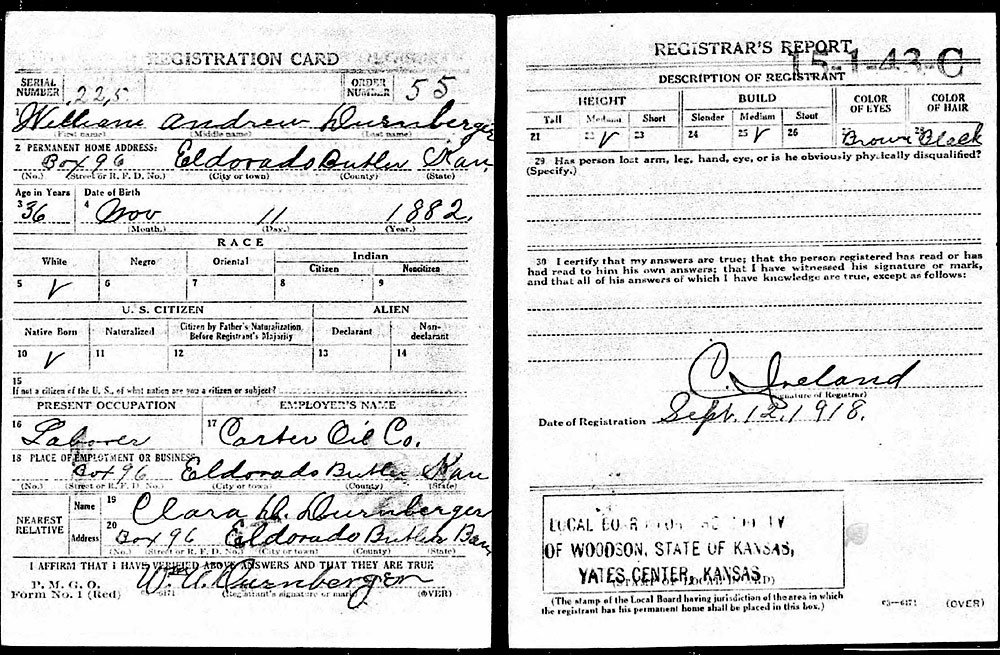 REGISTRATION CARD
SERIAL NUMBER 225 ORDER NUMBER 55
1 William Andrew Durnberger
(First name) (Middle name) (Last name)
2 PERMANENT HOME ADDRESS:
Box 96 Eldorado Butler Kan
(No.) (Street or R. F. D. No.) (City or town) (County) (State)
Age in Years Date of Birth
3 36 4 Nov 11 1882
(Month.) (Day.) (Year.)
RACE
White Negro Oriental Indian
Citizen Noncitizen
5 V 6 7 8 9
U. S. CITIZEN ALIEN
Native Born Naturalized Citizen by Father's Naturalization Before Registrant's Majority Declarant Non-declarant
10 V 11 12 13 14
15
If not a citizen of the U. S., of what nation are you a citizen or subject?
PRESENT OCCUPATION EMPLOYER'S NAME
16 Laborer 17 Carter Oil Co.
18 PLACE OF EMPLOYMENT OR BUSINESS:
Box 96 Eldorado Butler Kan
(No.) (Street or R. F. D. No.) (City or town) (County) (State)
NEAREST RELATIVE
Name 19 Clara D. Durnberger
Address 20 Box 96 Eldorado Butler
(No.) (Street or R. F. D. No.) (City or town) (County) (State)
I AFFIRM THAT I HAVE VERIFIED ABOVE ANSWERS AND THAT THEY ARE TRUE
P. M. G. O.
Form No. 1 (Red) Wm A. Durnberger
(Registrant's signature or mark) (OVER)
REGISTRAR'S REPORT
15-1-43-C
DESCRIPTION OF REGISTRANT
HEIGHT BUILD COLOR OF EYES COLOR OF HAIR
Tall Medium Short Slender Medium Stout
21 22 V 23 24 25 V 26 27 Brown 28 Black
29 Has person lost arm, leg, hand, eye, or is he obviously physically disqualified?
(Specify.)
30 I certify that my answers are true; that the person registered has read or has
had read to him his own answers; that I have witnessed his signature or mark,
and that all of his answers of which I have knowledge are true, except as follows:
C. Ireland
(Signature of Registrar)
Date of Registration Sept. 12, 1918.
LOCAL
OF WOODSON, STATE OF KANSAS,
YATES CENTER, KANSAS.
(The stamp of the Local Board having jurisdiction of the area in which
the registrant has his permanent home shall be placed in this box.)
03-6171 (OVER)